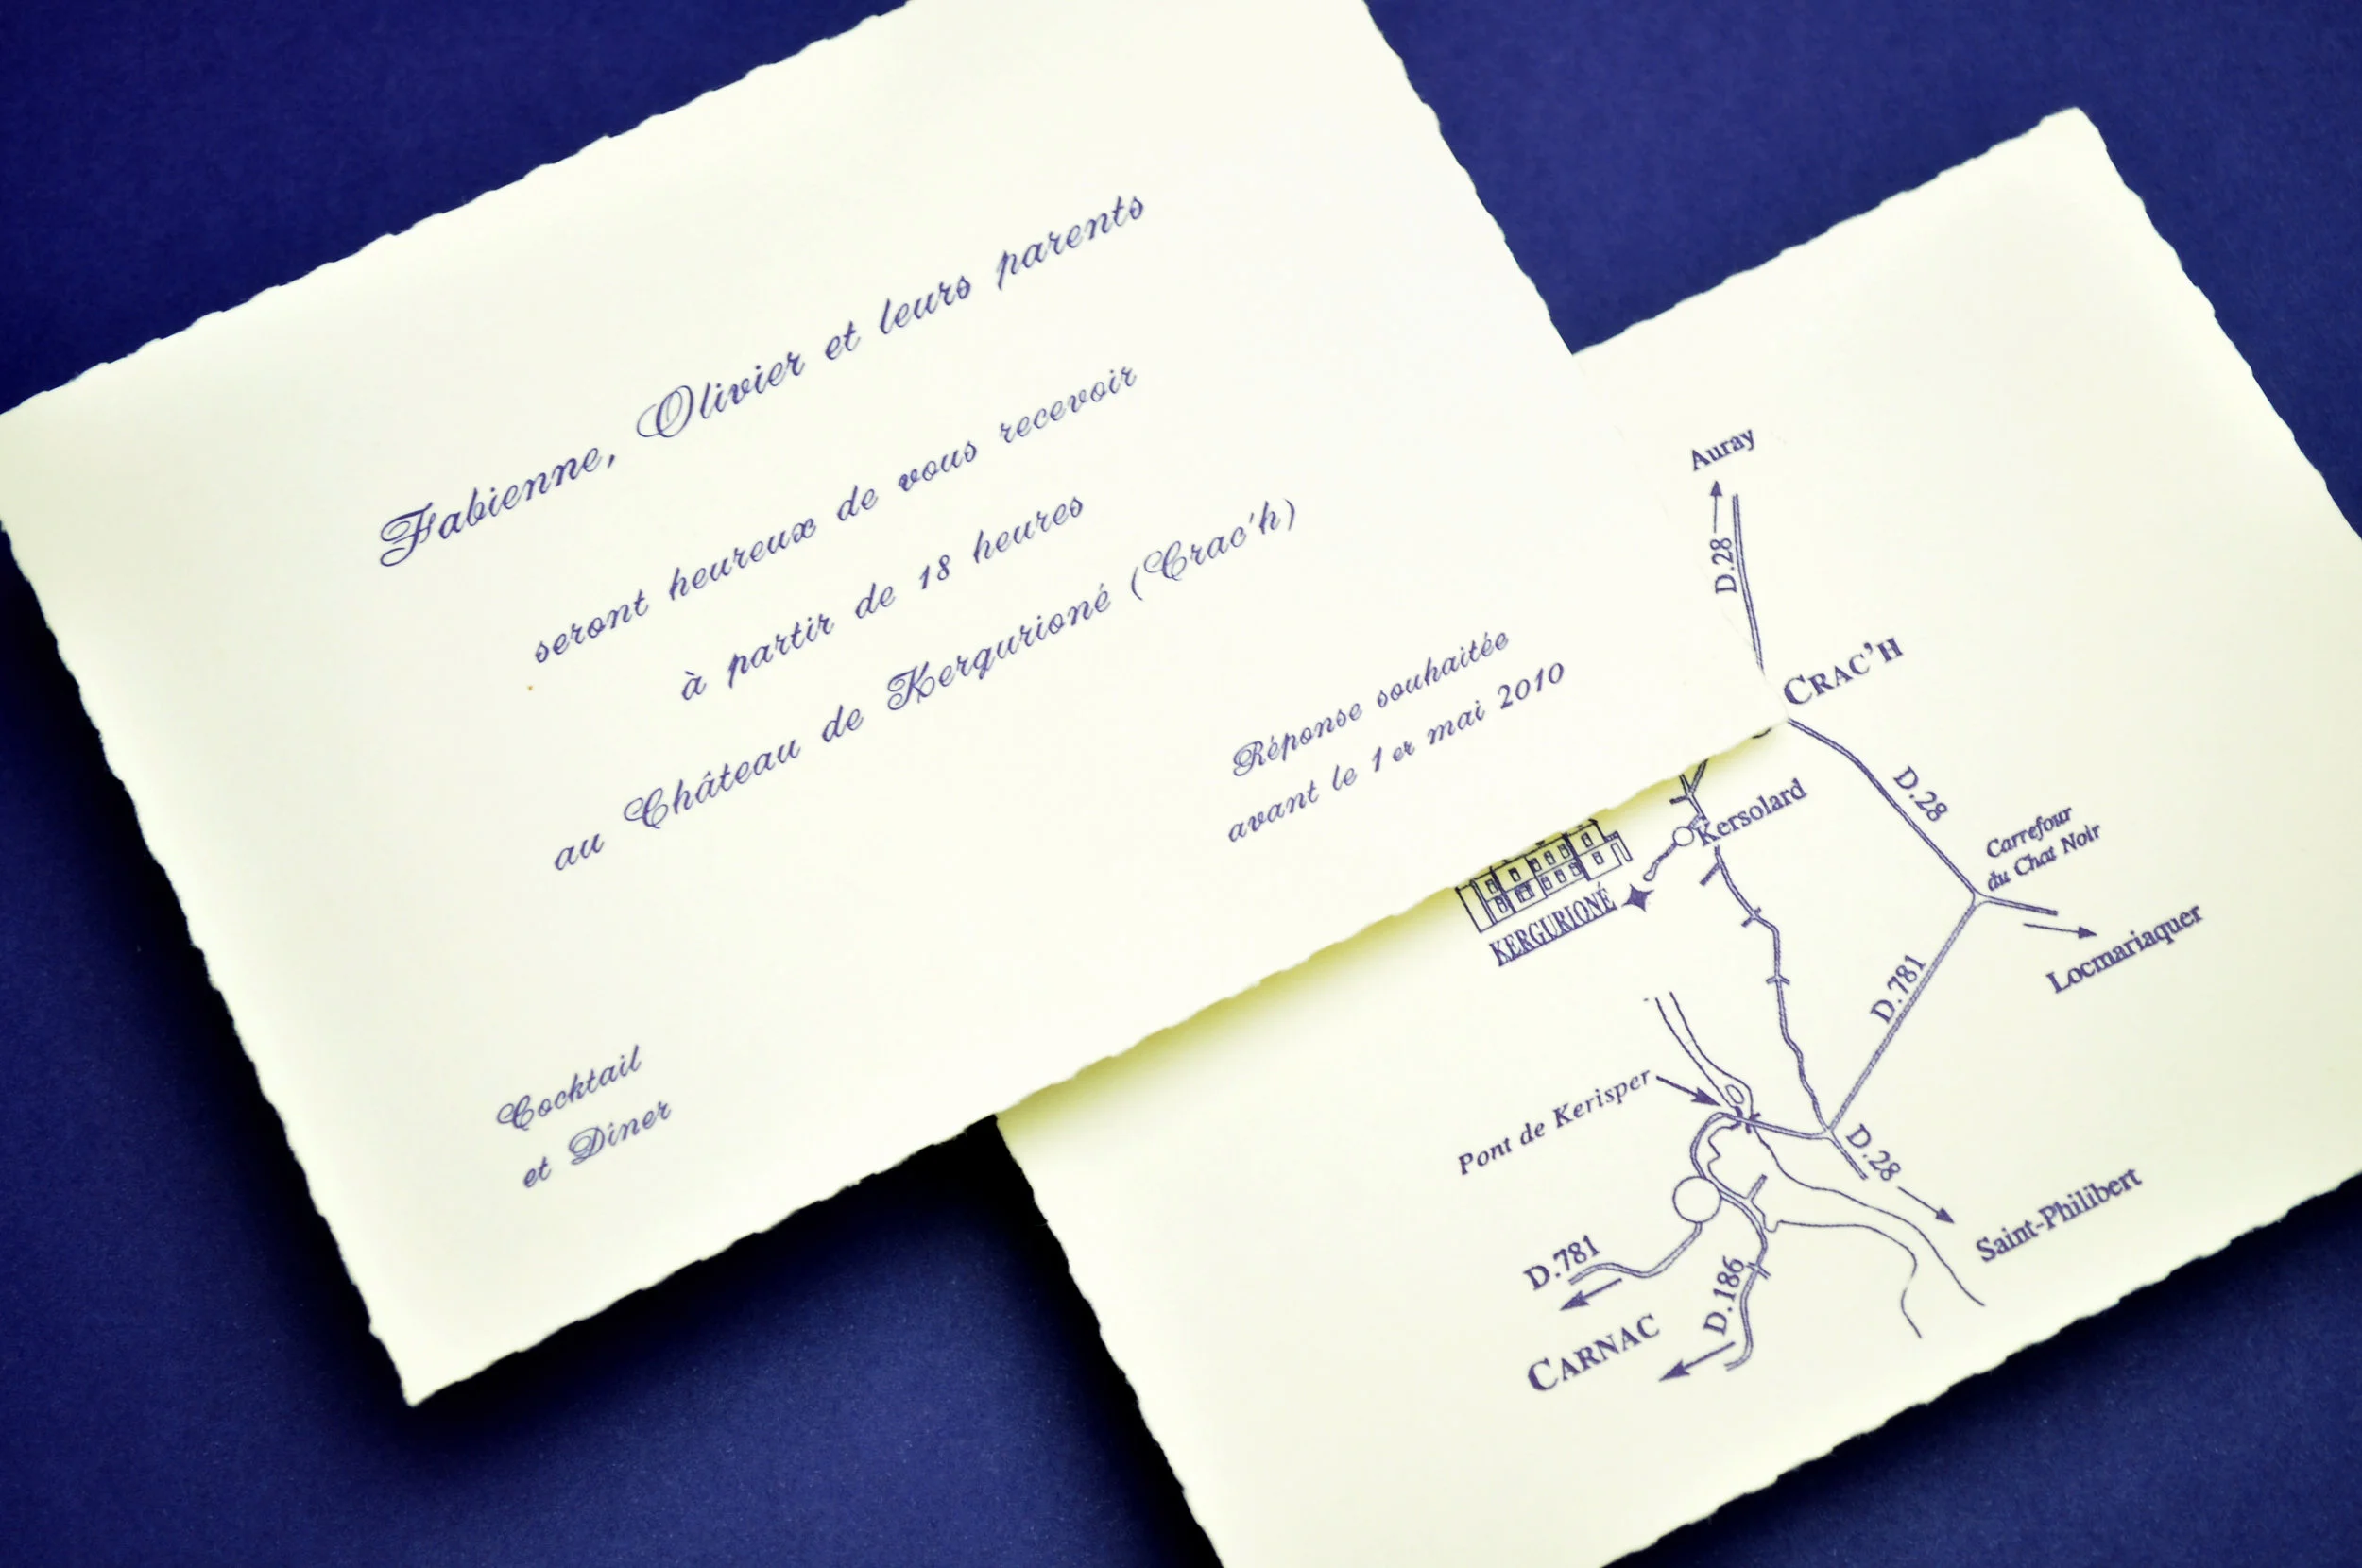 Fabienne, Olivier et leurs parents
seront heureux de vous recevoir
à partir de 18 heures
au Château de Kergurioné (Crac'h)
Réponse souhaitée
avant le 1er mai 2010
Cocktail
et Dîner
Auray
D.28
CRAC'H
D.28
Kersolard
Carrefour
du Chat Noir
KERGURIONÉ
Locmariaquer
D.781
Pont de Kerisper
D.28
Saint-Philibert
D.781
D.186
CARNAC